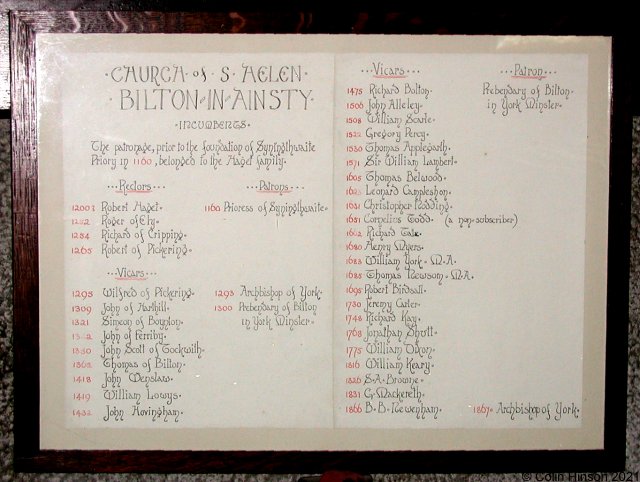 CHURCH of S HELEN
BILTON IN AINSTY
INCUMBENTS
The patronage, prior to the foundation of Syningthwaite
Priory in 1160, belonged to the Haget family.
Rectors Patrons
1200? Robert Haget 1160 Prioress of Syningthwaite
1252 Roger of Ely
1254 Richard of Cripping
1265 Robert of Pickering
Vicars
1295 Wilfred of Pickering 1293 Archbishop of York
1309 John of Harthill 1300 Prebendary of Bilton
1321 Simeon of Boynton in York Minster
John of Ferriby
1350 John Scott of Tockwith
1362 Thomas of Bilton
1418 John Wenslaw
1419 William Lowys
1432 John Hovingham
Vicars Patron
1475 Richard Bolton Prebendary of Bilton
1506 John Alleley in York Minster
1508 William Searle
1522 Gregory Percy
1530 Thomas Applegarth
1571 Sir William Lambert
1605 Thomas Belwood
Leonard Campleshon
1631 Christopher Pudding
1651 Cornelius Todd (a non-subscriber)
1662 Richard Tate
1680 Henry Myers
1683 William York M.A.
1685 Thomas Newsom M.A.
1695 Robert Birdsall
1730 Jeremy Carter
1748 Richard Kay
1768 Jonathan Shutt
1775 William Dixon
1816 William Keary
1826 S.A. Browne
1831 G. Mackereth
1866 B.B. Newenham 1867 Archbishop of York
© Colin Hinson 2021